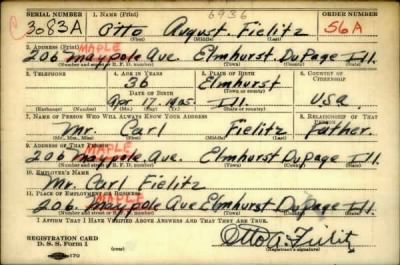 SERIAL NUMBER 1. NAME (Print) 6936 ORDER NUMBER
C 3083A Otto August Fielitz 56A
(First) (Middle) (Last)
2. ADDRESS (Print) MAPLE
206 Maypole Ave. Elmhurst, DuPage Ill.
(Number and street or R. F. D. number) (Town) (County) (State)
3. TELEPHONE 4. AGE IN YEARS 5. PLACE OF BIRTH 6. COUNTRY OF CITIZENSHIP
36 Elmhurst
DATE OF BIRTH (Town or county)
Apr. 17 1905 Ill. USA.
(Mo.) (Day) (Yr.) (State or country)
7. NAME OF PERSON WHO WILL ALWAYS KNOW YOUR ADDRESS 8. RELATIONSHIP OF THAT PERSON
Mr. Carl Fielitz Father.
(Mr., Mrs., Miss) (First) (Middle) (Last)
9. ADDRESS OF THAT PERSON MAPLE
206 Maypole Ave. Elmhurst DuPage Ill.
(Number and street or R. F. D. number) (Town) (County) (State)
10. EMPLOYER'S NAME
Mr. Carl Fielitz
11. PLACE OF EMPLOYMENT OR BUSINESS MAPLE
206 Maypole Ave Elmhurst DuPage Ill.
(Number and street or R. F. D. number) (Town) (County) (State)
I AFFIRM THAT I HAVE VERIFIED ABOVE ANSWERS AND THAT THEY ARE TRUE.
REGISTRATION CARD
D. S. S. Form 1 (over) Otto A. Fielitz
(Registrant's signature)